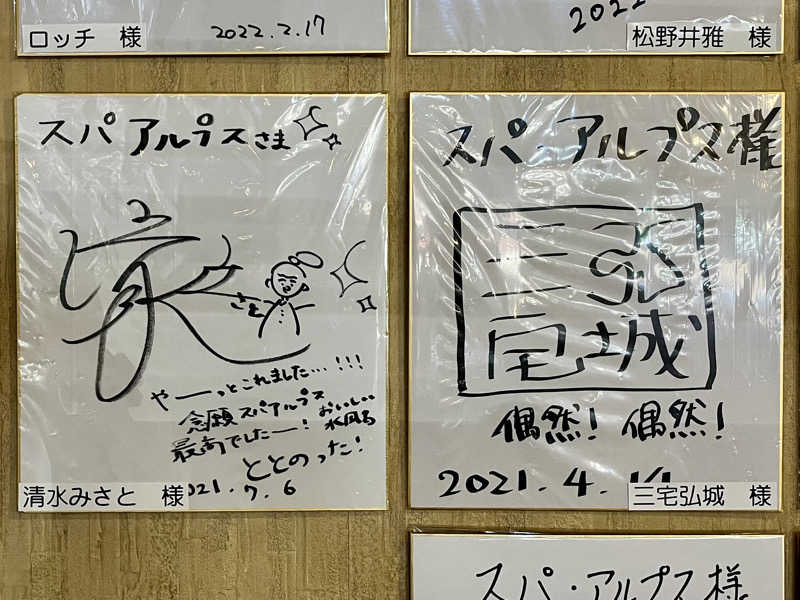 ロッチ 様
2022.2.17
2022
松野井雅 様
スパ アルプスさま
さと
やーっとこれました…!!!
念願スパアルプス
最高でしたー!
おいしい
水風呂
ととのった!
2021.7.6
清水みさと 様
スパ・アルプス様
三宅弘城
偶然! 偶然!
2021.4.14
三宅弘城 様
スパ・アルプス様